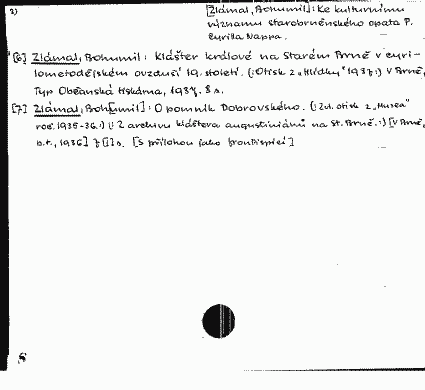 2)
[Zlámal, Bohumil]: Ke kulturnímu
významu starobrněnského opata P.
Cyrilla Nappa.
[6] Zlámal, Bohumil: Klášter králové na Starém Brně v cyri-
lometodějském ovzduší 19. století. (:Otisk z „Hlídky" 1937:) V Brně,
Typ Občanská tiskárna, 1937. 8 s.
[7] Zlámal, Boh[umil]: O pomník Dobrovského. (:Zvl. otisk z „Musea"
roč. 1935-36.:) (: Z archivu kláštera augustiniánů na St. Brně.:) [V Brně,
b.t., 1936] 7 [1] s. [S přílohou jako frontispicí]
S